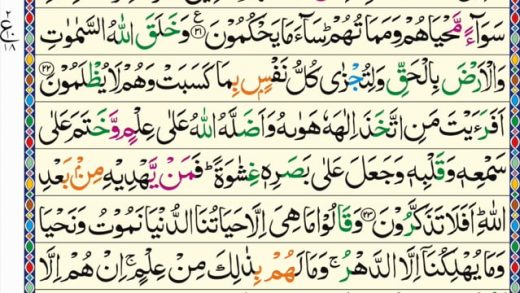 سَوَآءً مَّحۡيَاهُمۡ وَمَمَاتُهُمۡ ؕ سَآءَ مَا يَحۡكُمُوۡنَ ﴿۲۱﴾ وَخَلَقَ اللّٰهُ السَّمٰوٰتِ
وَالۡاَرۡضَ بِالۡحَقِّ وَلِتُجۡزٰى كُلُّ نَفۡسٍۢ بِمَا كَسَبَتۡ وَهُمۡ لَا يُظۡلَمُوۡنَ ﴿۲۲﴾
اَفَرَءَيۡتَ مَنِ اتَّخَذَ اِلٰهَهٗ هَوٰٮهُ وَاَضَلَّهُ اللّٰهُ عَلٰى عِلۡمٍ وَّخَتَمَ عَلٰى
سَمۡعِهٖ وَقَلۡبِهٖ وَجَعَلَ عَلٰى بَصَرِهٖ غِشٰوَةً ؕ فَمَنۡ يَّهۡدِيۡهِ مِنۡۢ بَعۡدِ
اللّٰهِ ؕ اَفَلَا تَذَكَّرُوۡنَ ﴿۲۳﴾ وَقَالُوۡا مَا هِىَ اِلَّا حَيَاتُنَا الدُّنۡيَا نَمُوۡتُ وَنَحۡيَا
وَمَا يُهۡلِكُنَاۤ اِلَّا الدَّهۡرُ ۚ وَمَا لَهُمۡ بِذٰلِكَ مِنۡ عِلۡمٍ ۚ اِنۡ هُمۡ اِلَّا